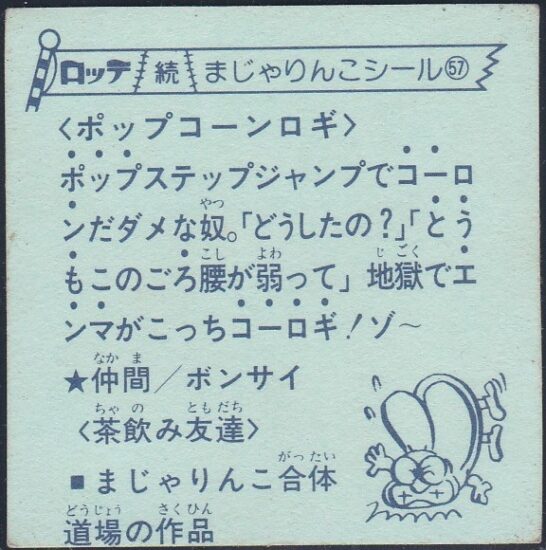 ロッテ 続 まじゃりんこシール57
〈ポップコーンロギ〉
ポップステップジャンプでコーロ
ンだダメな奴。「どうしたの?」「とう
もこのごろ腰が弱って」地獄でエ
ンマがこっちコーロギ!ゾ〜
★仲間/ボンサイ
〈茶飲み友達〉
■まじゃりんこ合体
道場の作品